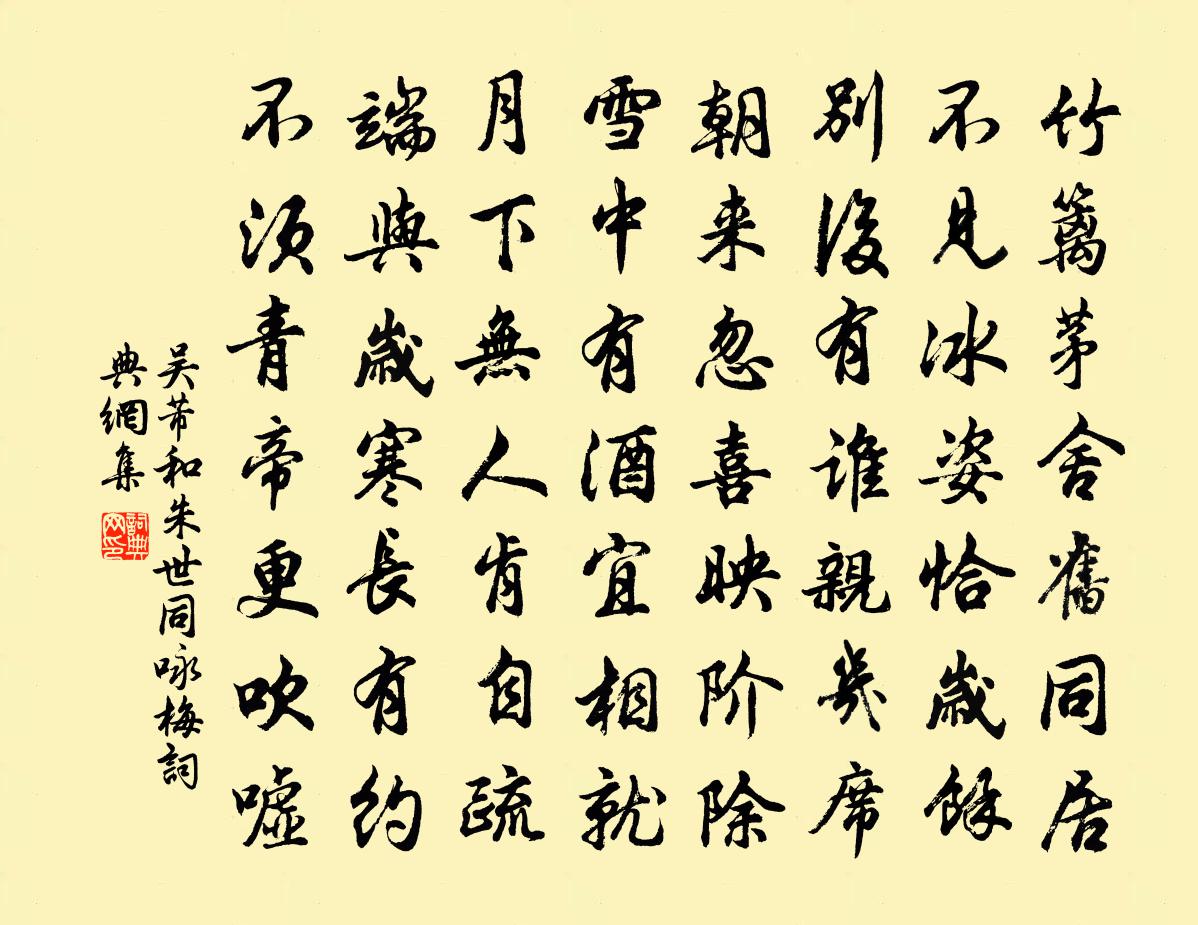 竹籬茅舍舊同居
不見冰姿恰歲餘
別後有誰親几席
朝来忽喜映阶除
雪中有酒宜相就
月下無人肯自疏
端與歲寒長有約
不須青帝更吹噓
吴芾和朱世同咏梅詞
典網集
詞典
网印